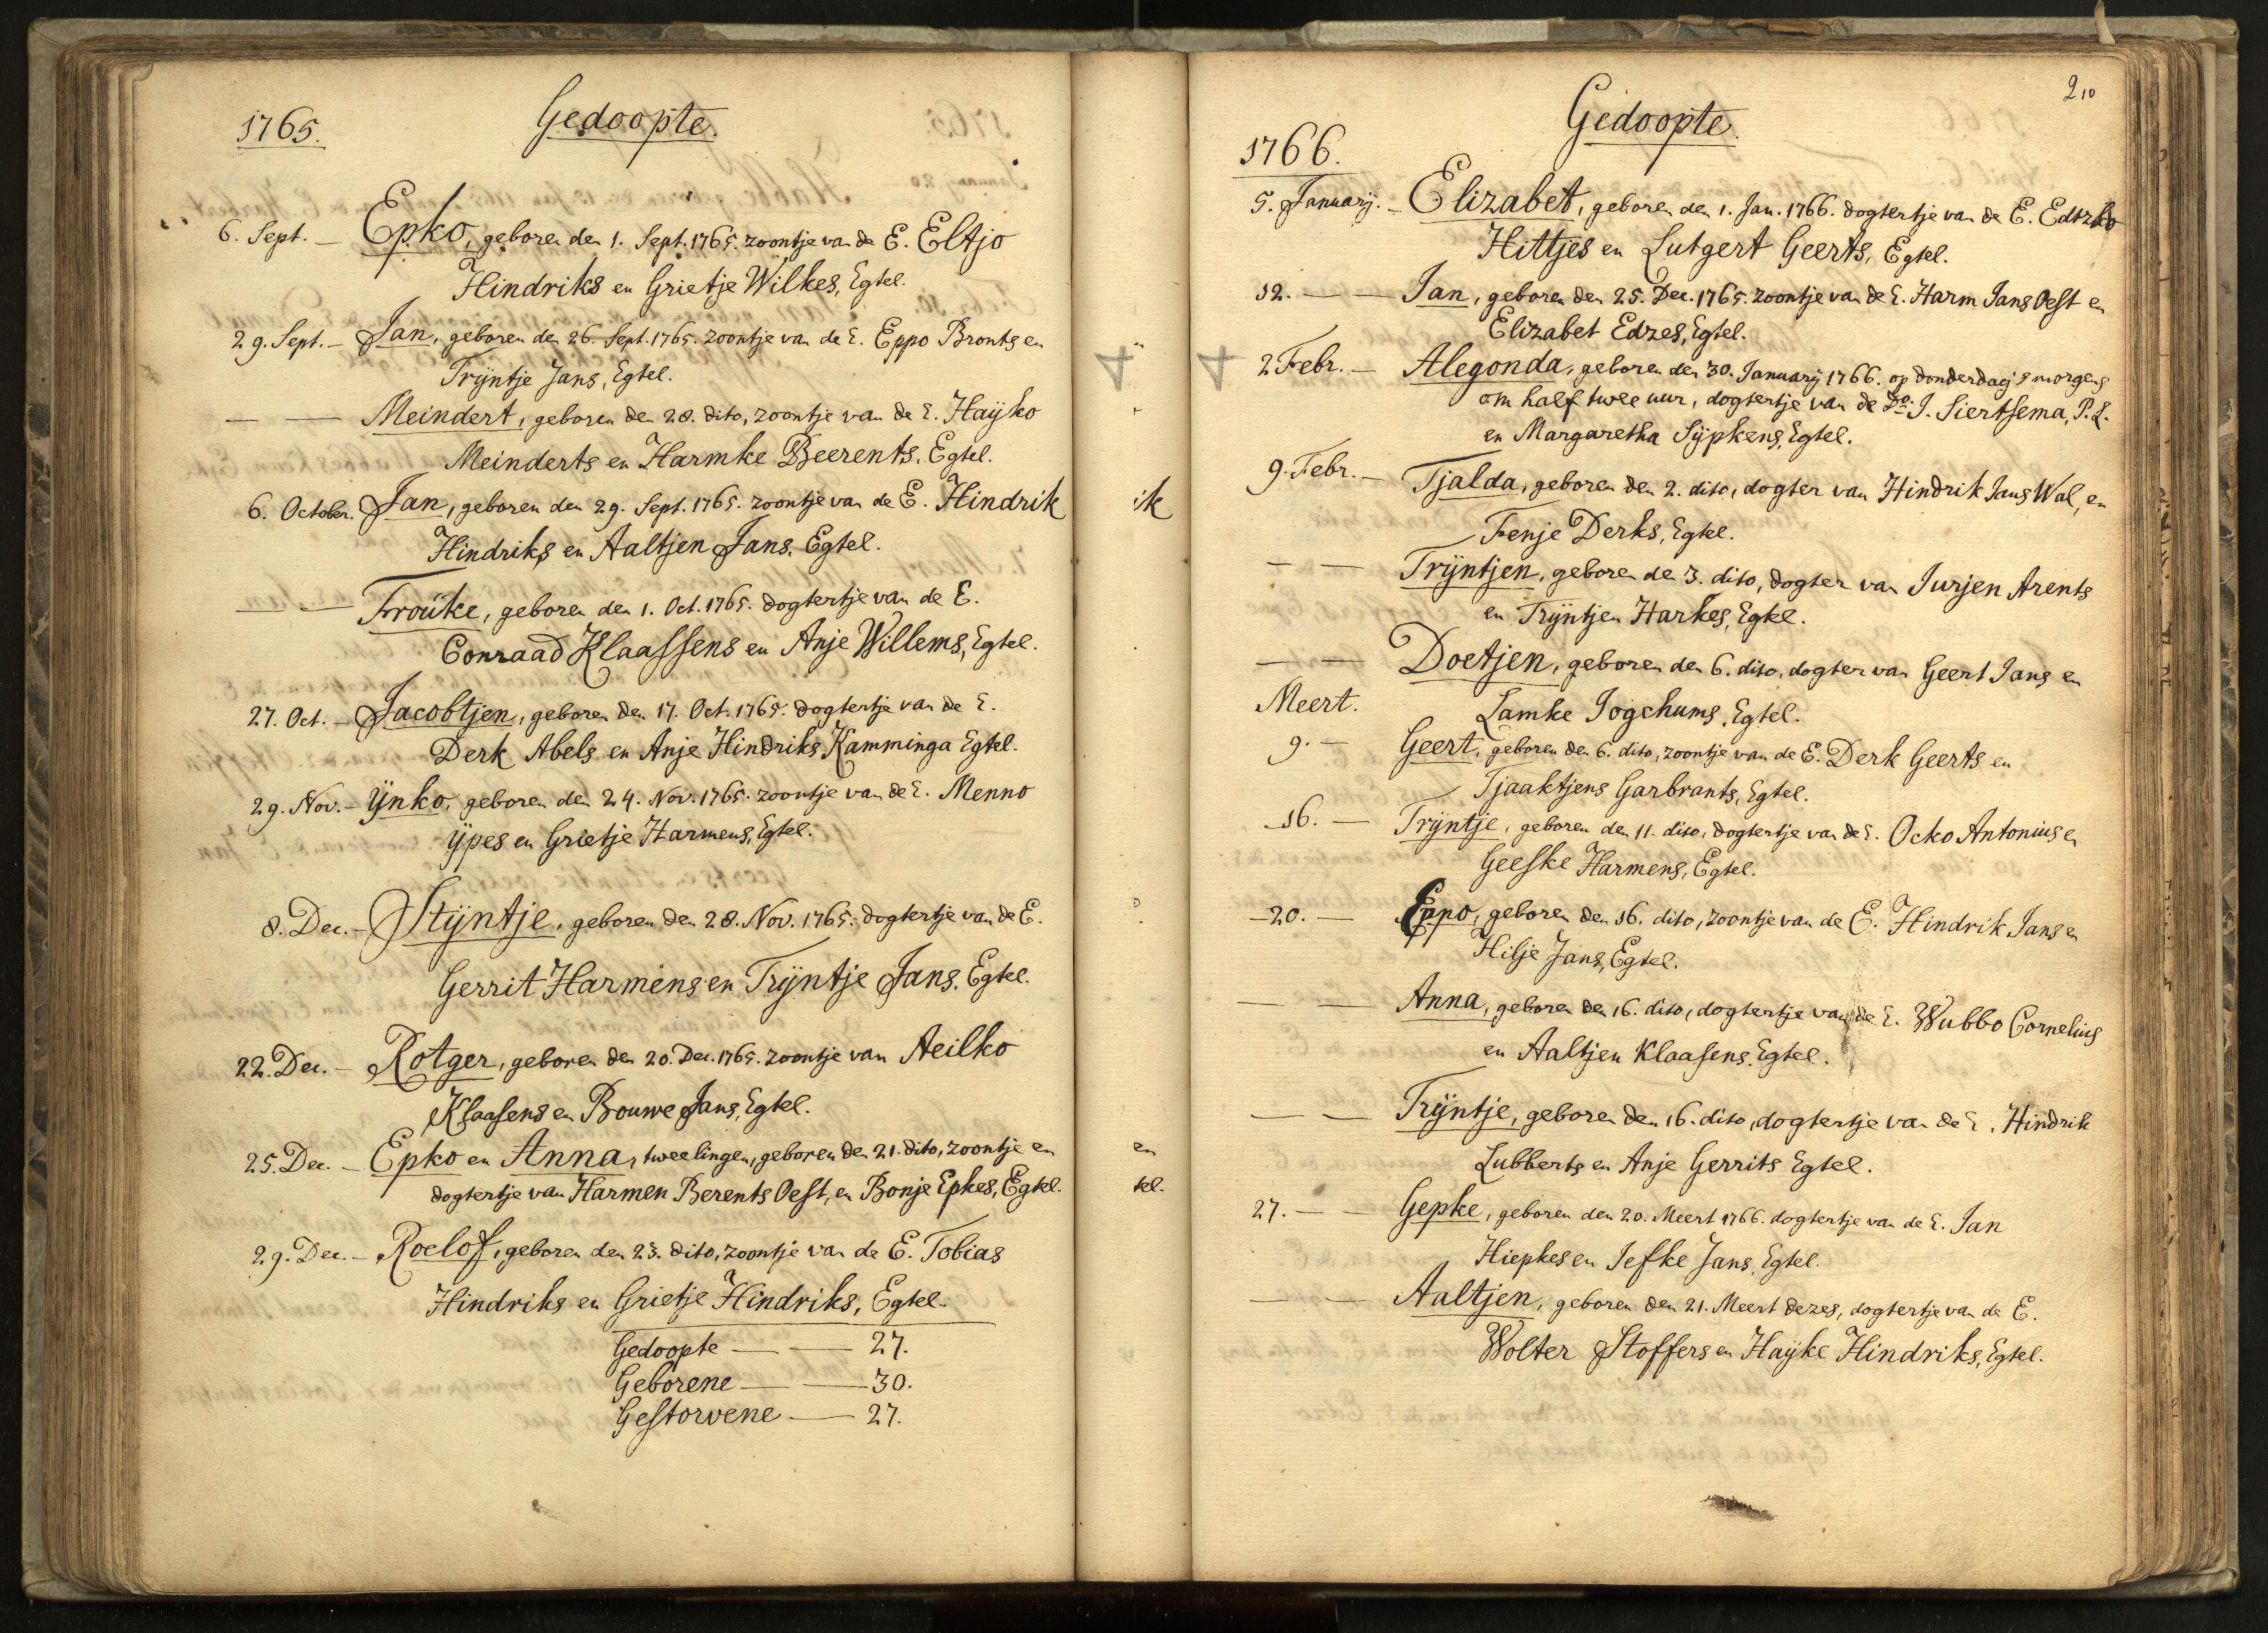 1765.
Gedoopte.
6. Sept. — Epko, geboren den 1. Sept. 1765. zoontje van de E. Eltjo
Hindriks en Grietje Wilkes, Egtel.
29. Sept. — Jan, geboren den 26. Sept. 1765. zoontje van de E. Eppo Bronts en
Trÿntje Jans, Egtel.
— — Meindert, geboren den 28. dito, zoontje van de E. Haÿko
Meinderts en Harmke Beerents, Egtel.
6. October. Jan, geboren den 29. Sept. 1765. zoontje van de E. Hindrik
Hindriks en Aaltjen Jans. Egtel.
— — Frouke, geboren den 1. Oct. 1765. dogtertje van de E.
Conraad Klaassens en Anje Willems, Egtel.
27. Oct. — Jacobtjen, geboren den 17. Oct. 1765. dogtertje van de E.
Derk Abels en Anje Hindriks Kamminga Egtel.
29. Nov. — Ÿnko, geboren den 24. Nov. 1765. zoontje van de E. Menno
Ÿpes en Grietje Harmens, Egtel.
8. Dec. — Stÿntje, geboren den 28. Nov. 1765. dogtertje van de E.
Gerrit Harmens en Trÿntje Jans. Egtel.
22. Dec. — Rotger, geboren den 20. Dec. 1765. zoontje van Aeilko
Klaasens en Bouwe Jans, Egtel.
25. Dec. — Epko en Anna, tweelingen, geboren den 21. dito, zoontje en
dogtertje van Harmen Berents Oest, en Bonje Epkes, Egtel.
29. Dec. — Roelof, geboren den 23. dito, zoontje van de E. Tobias
Hindriks en Grietje Hindriks, Egtel.
Gedoopte — — 27.
Geborene — — 30.
Gestorvene — 27.
ik
en
tel.
210
Gedoopte.
1766.
5. Januarÿ. — Elizabet, geboren den 1. Jan. 1766. dogtertje van de E. Edtzko
Hittjes en Lutgert Geerts, Egtel.
12. — — Jan, geboren den 25. Dec. 1765. zoontje van de E. Harm Jans Oest en
Elizabet Edzes, Egtel.
2 Febr. — Alegonda, geboren den 30. Januarÿ 1766. op donderdag s morgens
om half twee uur, dogtertje van de Do. J. Siertsema, P. L.
en Margaretha Sÿpkens, Egtel.
9. Febr. — Tjalda, geboren den 2. dito, dogter van Hindrik Jans Wal, en
Fenje Derks, Egtel.
— — Trÿntjen, geboren de 3. dito, dogter van Jurjen Arents
en Trÿntjen Harkes, Egtel.
— — Doetjen, geboren den 6. dito, dogter van Geert Jans en
Lamke Jogchums, Egtel.
Meert.
9. — Geert, geboren den 6. dito, zoontje van de E. Derk Geerts en
Tjaaktjens Garbrants, Egtel.
16. — Trÿntje, geboren den 11. dito, dogtertje van de E. Ocko Antonius en
Geeske Harmens, Egtel.
20. — Eppo, geboren den 16. dito, zoontje van de E. Hindrik Jans en
Hilje Jans, Egtel.
— — Anna, geboren den 16. dito, dogtertje van de E. Wubbo Cornelius
en Aaltjen Klaasens. Egtel.
— — Trÿntje, geboren den 16. dito, dogtertje van de E. Hindrik
Lubberts en Anje Gerrits Egtel.
27. — — Gepke, geboren den 20. Meert 1766. dogtertje van de E. Jan
Hiepkes en Jefke Jans, Egtel.
— — Aaltjen, geboren den 21. Meert dezes, dogtertje van de E.
Wolter Stoffers en Haÿke Hindriks, Egtel.